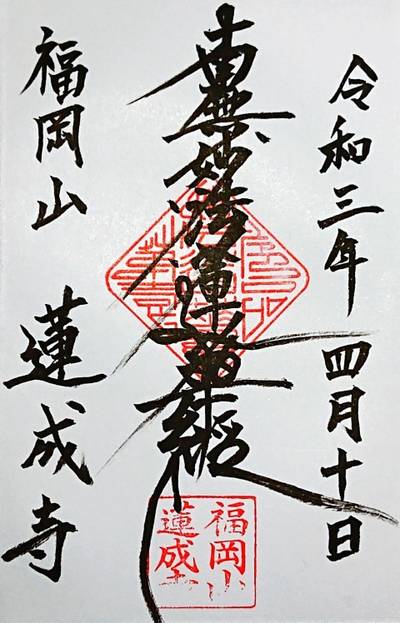 令和三年四月十日
南無妙法蓮華経
福岡山 蓮成寺
福岡山
蓮成寺